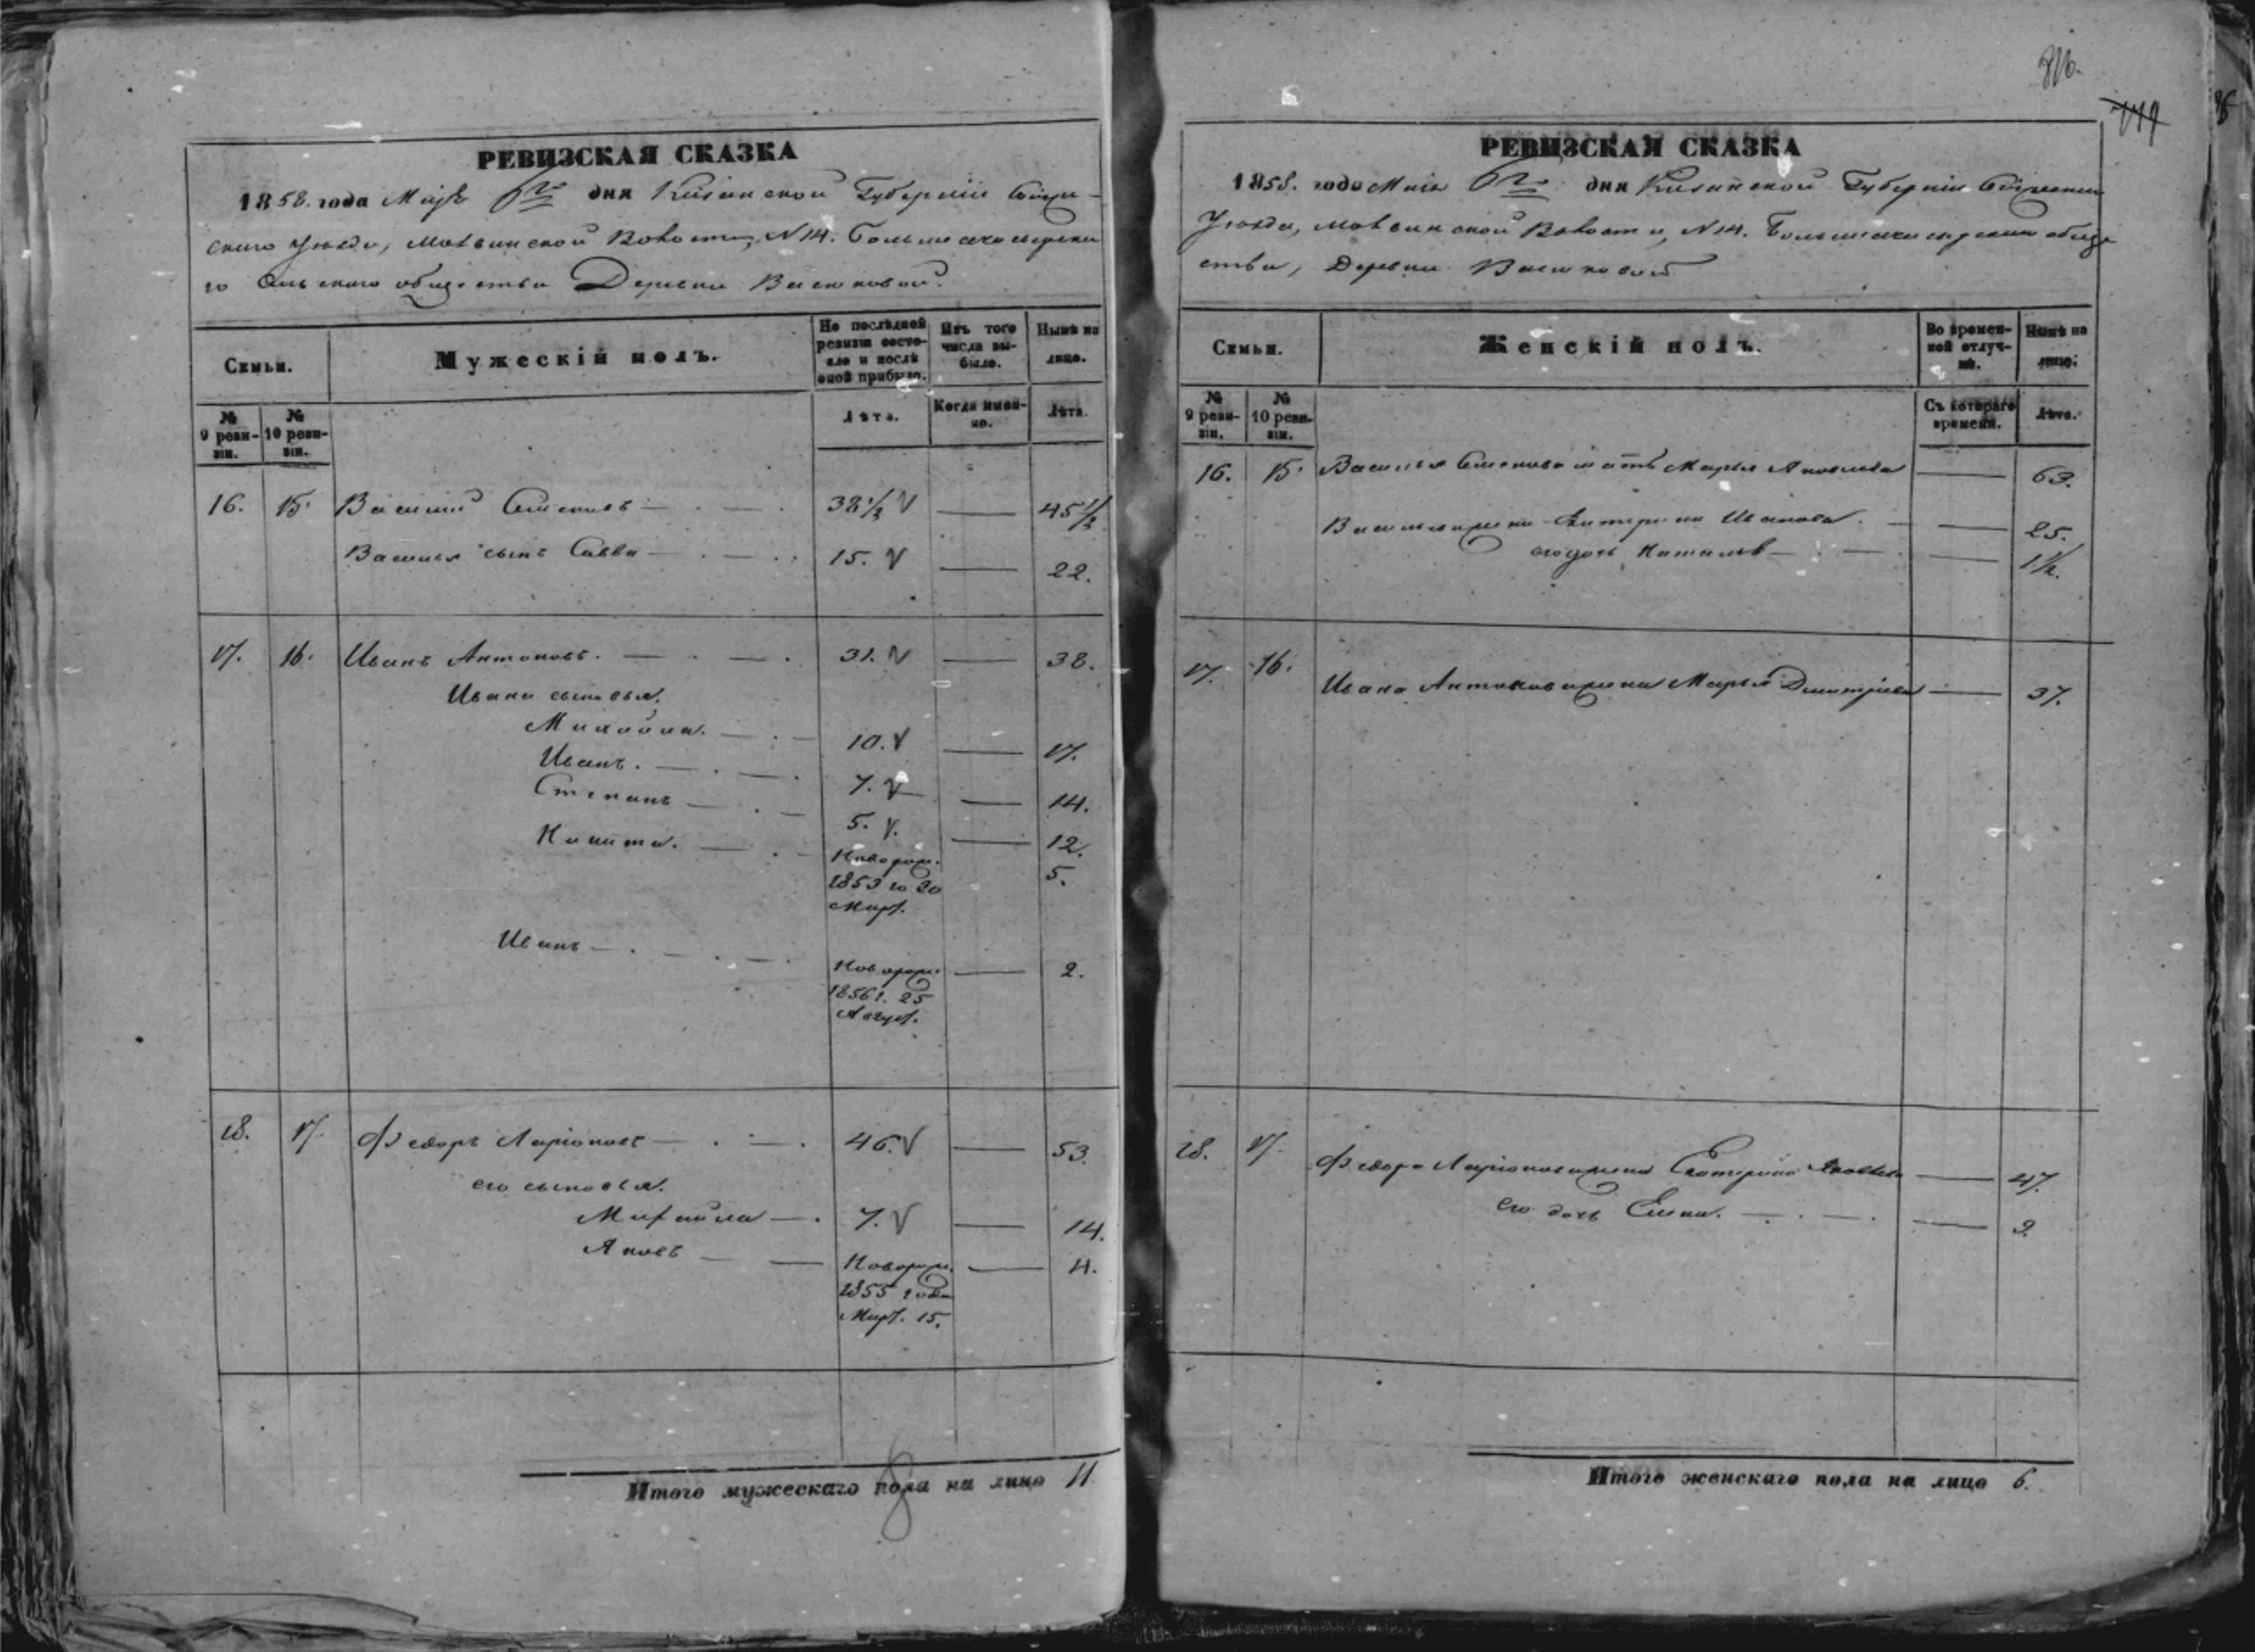 РЕВИЗСКАЯ СКАЗКА
1858. года Маія 6го дня Казанской Губерніи Свіяж-
скаго Уезда, Волости, № 14.
го Сельскаго общества Деревни Васюковой.
Семьи.
Мужескій полъ.
По послѣдней ревизіи состояло и послѣ оной прибыло.
Изъ того числа выбыло.
Нынѣ на лицо.
№ 9 ревизіи.
№ 10 ревизіи.
Лѣта.
Когда именно.
Лѣта.
16. 15. Василий Семеновъ 38 1/2 45 1/2
Василья сынъ Савва 15. 22.
17. 16. Иванъ Антоновъ. 31. 38.
Ивана сыновья.
Михайла. 10. 17.
Иванъ. 7. 14.
Степанъ 5. 12.
Никита.Новорож. 5.
1853 го 20
Март.
Иванъ Новорож. 2.
1856 г. 25
Август.
18. 17. Федоръ Ларіоновъ 46. 53.
его сыновья.
Михайла 7. 14.
Яковъ Новорож. 4.
1855 года
Март. 15.
Итого мужескаго пола на лицо 11.
РЕВИЗСКАЯ СКАЗКА
1858. года Маія 6го дня Казанской Губерніи
Уезда, Волости, № 14.
ства, Деревни Васюковой
Семьи.
Женскій полъ.
Во временной отлучкѣ.
Нынѣ на лицо.
№ 9 ревизіи.
№ 10 ревизіи.
Съ котораго времени.
Лѣта.
16. 15. Василья Семенова мать Марья Яковлева 63.
Васильева жена Катерина Иванова. 25.
его дочь Наталья 1 1/2.
17. 16. Ивана Антонова жена Марья Дмитріева 37.
18. 17. Федора Ларіонова жена Екатерина Яковлева 47.
его дочь Елена. 9.
Итого женскаго пола на лицо 6.